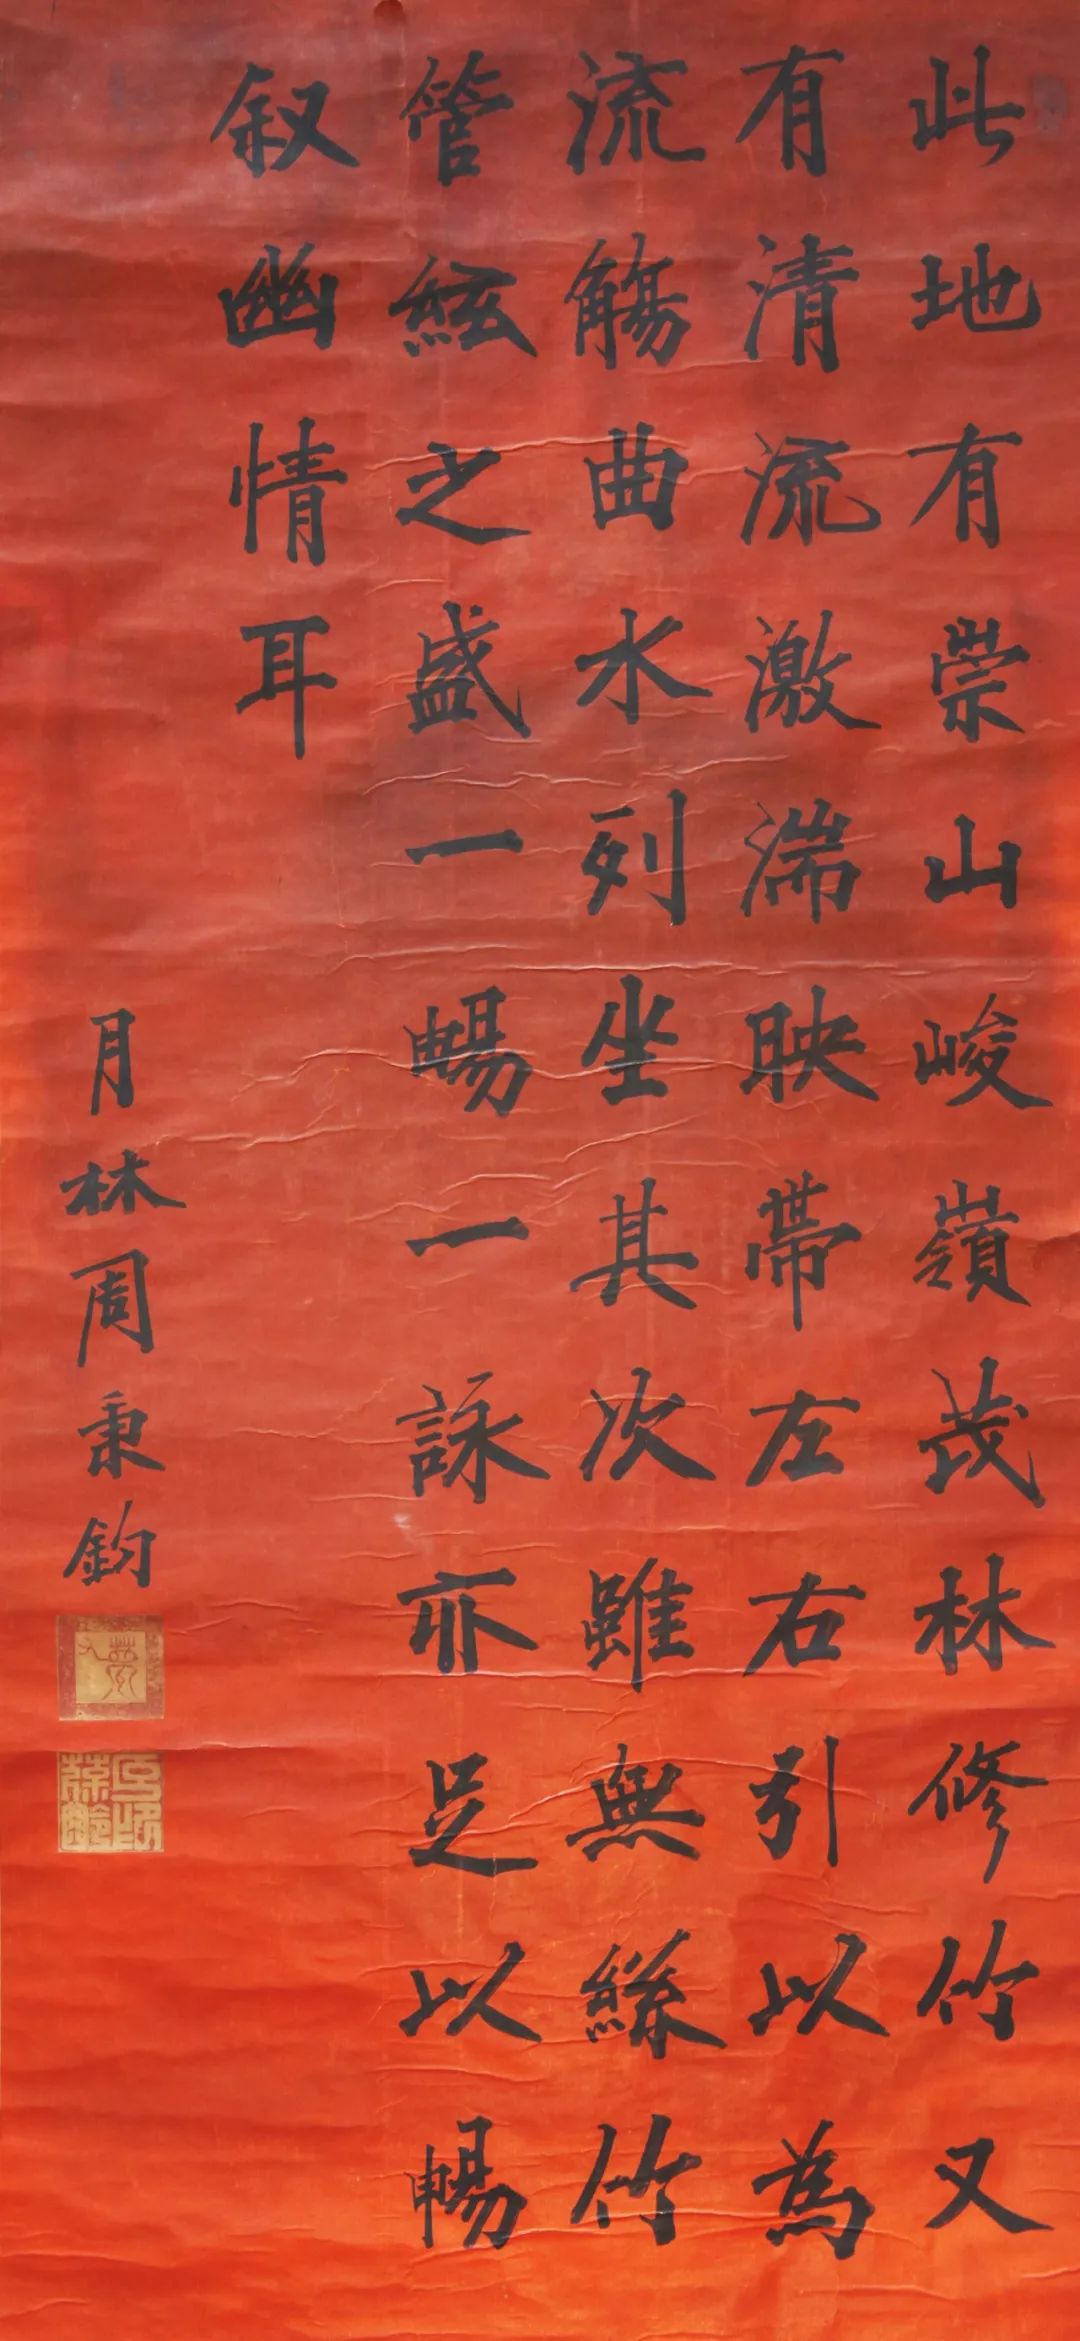 此地有崇山峻嶺茂林修竹又
有清流激湍映帶左右引以為
流觴曲水列坐其次雖無絲竹
管絃之盛一暢一詠亦足以暢
叙幽情耳
月林周秉鈞